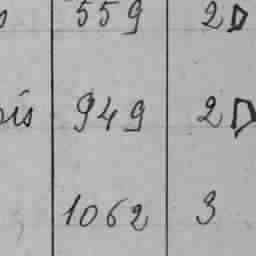 559 2D
is 949 2D
1062 3